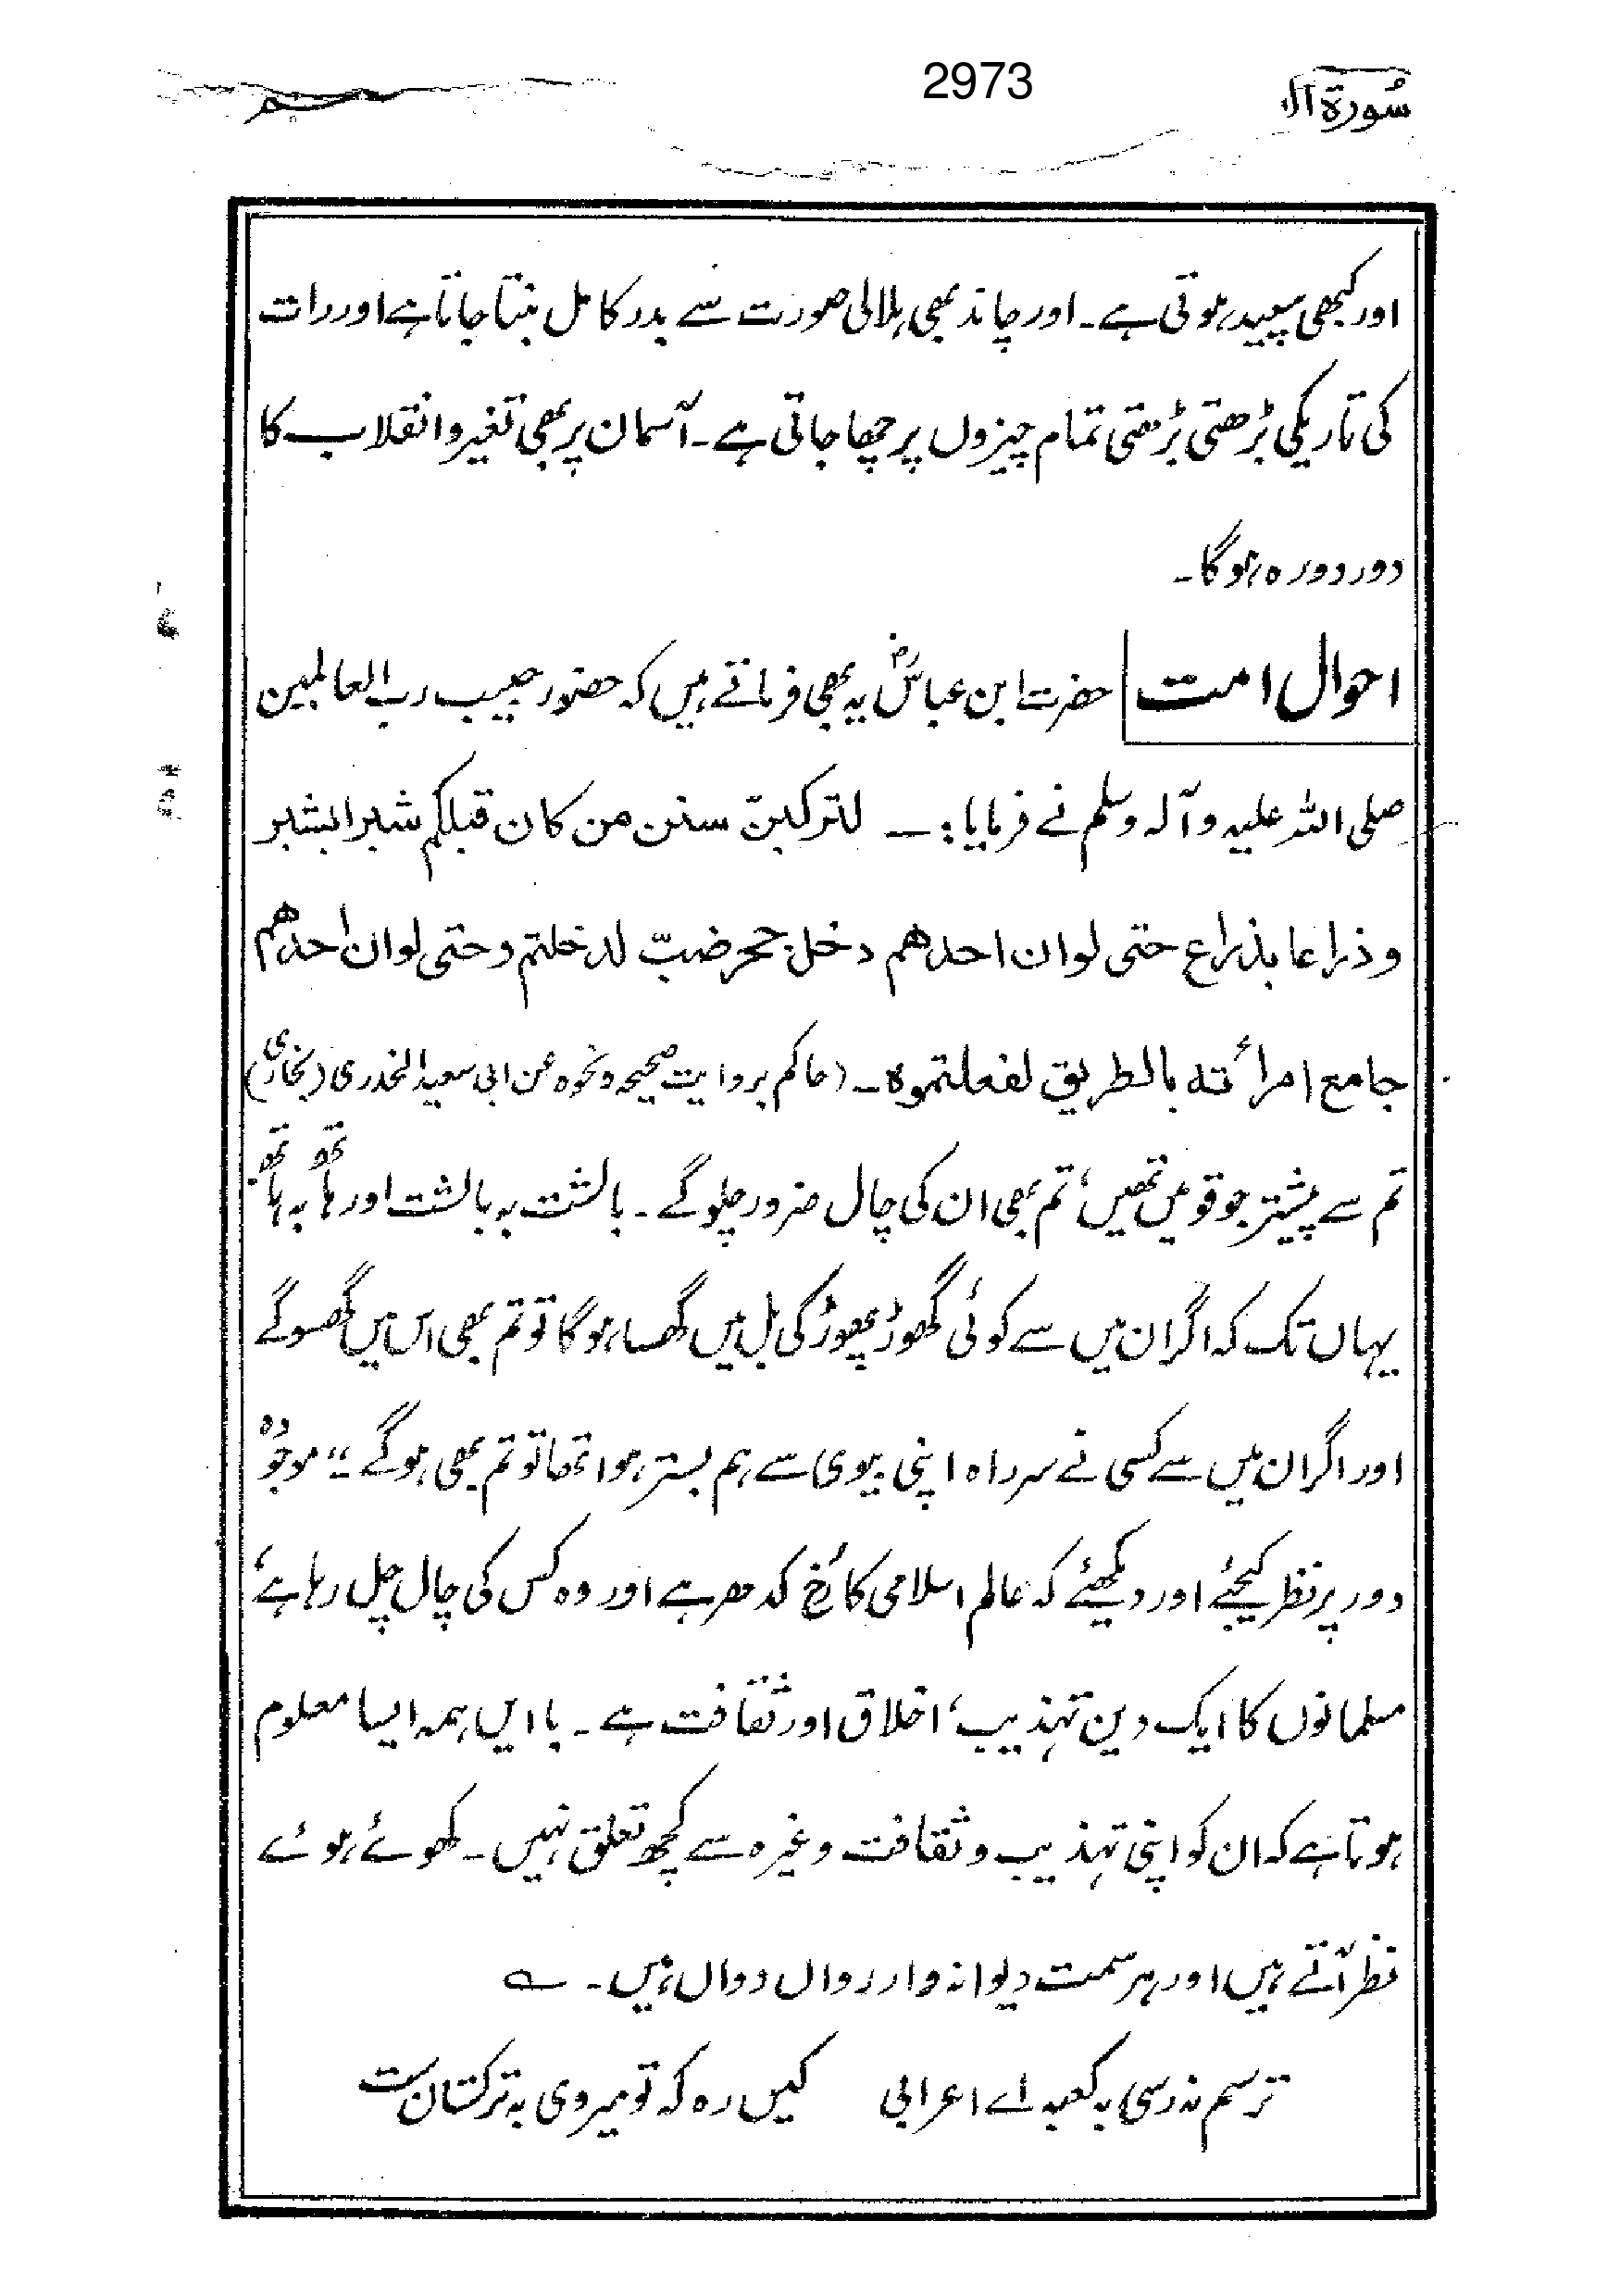 2973
سُورة الا
اور کبھی سپید ہوتی ہے۔ اور چاند بھی ہلالی صورت سے بدر کامل بنتا جاتا ہے اور رات
کی تاریکی بڑھتی بڑھتی تمام چیزوں پر چھا جاتی ہے۔ آسمان پر بھی تغیر و انقلاب کا
دور دورہ ہوگا۔
احوال امت حضرت ابن عباسؓ یہ بھی فرماتے ہیں کہ حضور حبیب رب العالمین
صلی اللہ علیہ وآلہ وسلم نے فرمایا :ــ لتركبنّ سنن من كان قبلكم شبرا بشبر
وذراعا بذراع حتى لو ان احدهم دخل جحر ضبّ لدخلتم وحتى لو ان احدهم
جامع امرأته بالطريق لفعلتموه۔ (حاکم بروایت صحیحہ ونحوہ عن ابی سعید الخدری (بخاری)
تم سے پیشتر جو قومیں تھیں، تم بھی ان کی چال ضرور چلو گے۔ بالشت بہ بالشت اور ہاتھ بہ ہاتھ
یہاں تک کہ اگر ان میں سے کوئی گھوڑ پھوڑ کی بل میں گھسا ہوگا تو تم بھی اس میں گھسو گے
اور اگر ان میں سے کسی نے سر راہ اپنی بیوی سے ہم بستر ہوا تھا تو تم بھی ہو گے۔" موجودہ
دور پر نظر کیجئے اور دیکھئے کہ عالم اسلامی کا رُخ کدھر ہے اور وہ کس کی چال چل رہا ہے،
مسلمانوں کا ایک دین تہذیب، اخلاق اور ثقافت ہے۔ باایں ہمہ ایسا معلوم
ہوتا ہے کہ ان کو اپنی تہذیب و ثقافت وغیرہ سے کچھ تعلق نہیں۔ کھوئے ہوئے
نظر آتے ہیں اور ہر سمت دیوانہ وار رواں دواں ہیں۔ ؎
ترسم نہ رسی بہ کعبہ اے اعرابی کیں رہ کہ تو میروی بہ ترکستان ست